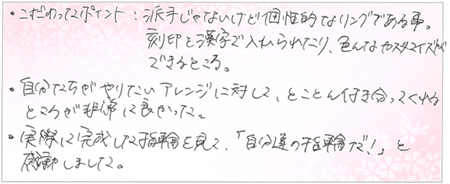 ・こだわったポイント：派手じゃないけど個性的なリングである事。
刻印を漢字で入れられたり、色んなカスタマイズが
できるところ。
・自分たちがやりたいアレンジに対して、とことん付き合ってくれる
ところが非常に良かった。
・実際に完成した指輪を見て、「自分達の指輪だ！」と
感動しました。